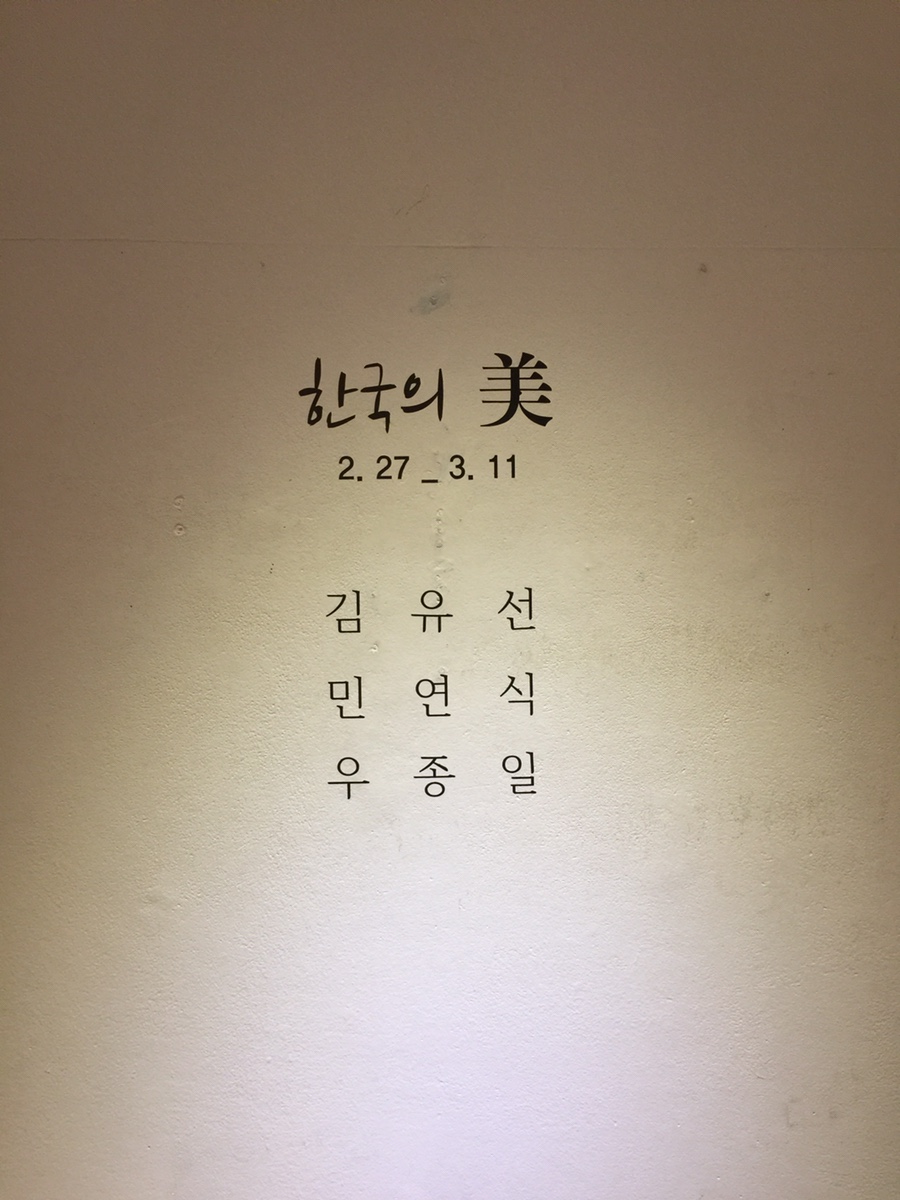 한국의 美
2. 27 _ 3. 11
김 유 선
민 연 식
우 종 일